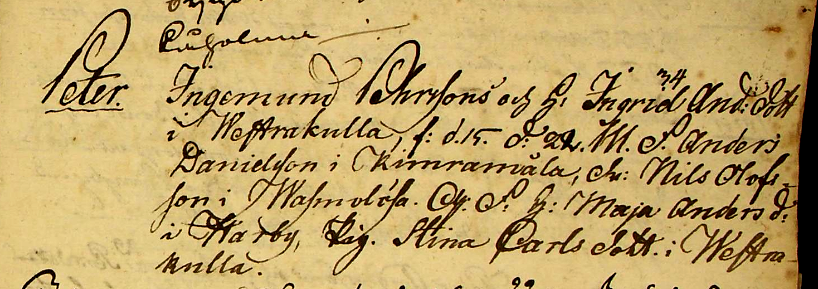 Peter. Ingemund Pehrssons och H: Ingrid And: Dott 34
i Westrakulla, f: d. 15. d: 22. M. S. Anders
Danielsson i Kimramåla, dr: Nils Olofs-
son i
S. H: Maja Anders d:
i Harby, Pig. Stina Carls Dott. i Westra-
kulla.